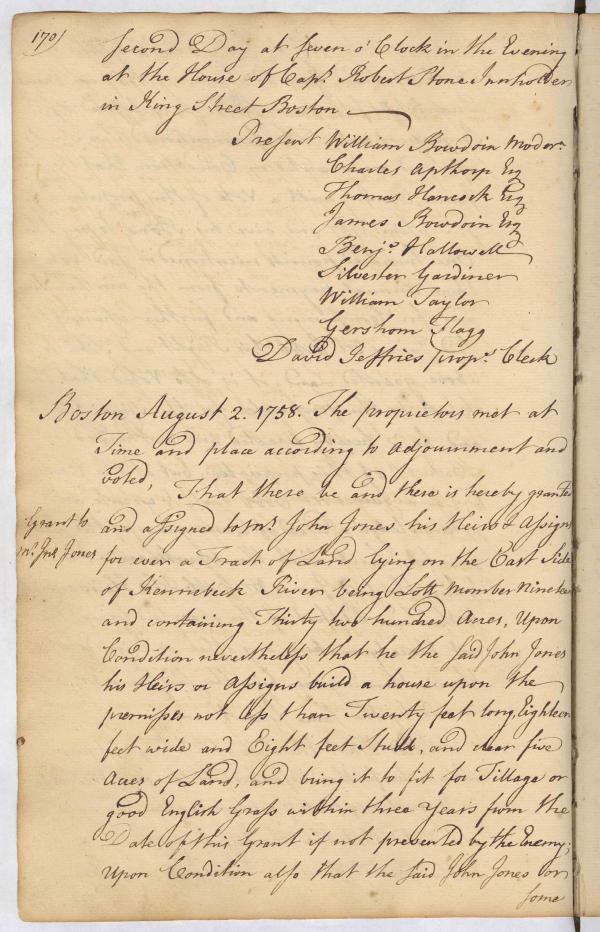 170)
Second Day at seven o'Clock in the Evening
at the House of Capt. Robert Stone Innholder
in King Street Boston
Present William Bowdoin Moder.
Charles Apthorp Esq
Thomas Hancock Esq
James Bowdoin Esq
Benjа. Hallowell
Silvester Gardiner
William Taylor
Gershom Flagg
David Jeffries props. Clerk
Boston August 2. 1758. The proprietors met at
Time and place according to adjournment and
Voted,
That there be and there is hereby granted
Grant to
Mr. Jno Jones
and assigned to Mr. John Jones his Heirs & Assigns
for ever a Tract of Land lying on the East Side
of Kennebeck River being Lott Number Nineteen
and containing Thirty two hundred Acres, Upon
Condition nevertheless that he the said John Jones
his Heirs or Assigns build a house upon the
premisses not less than Twenty feet long, Eighteen
feet wide and Eight feet Studd, and clear five
Acres of Land, and bring it to fit for Tillage or
good English Grass within three Years from the
Date of this Grant if not prevented by the Enemy;
Upon Condition also that the said John Jones or
some